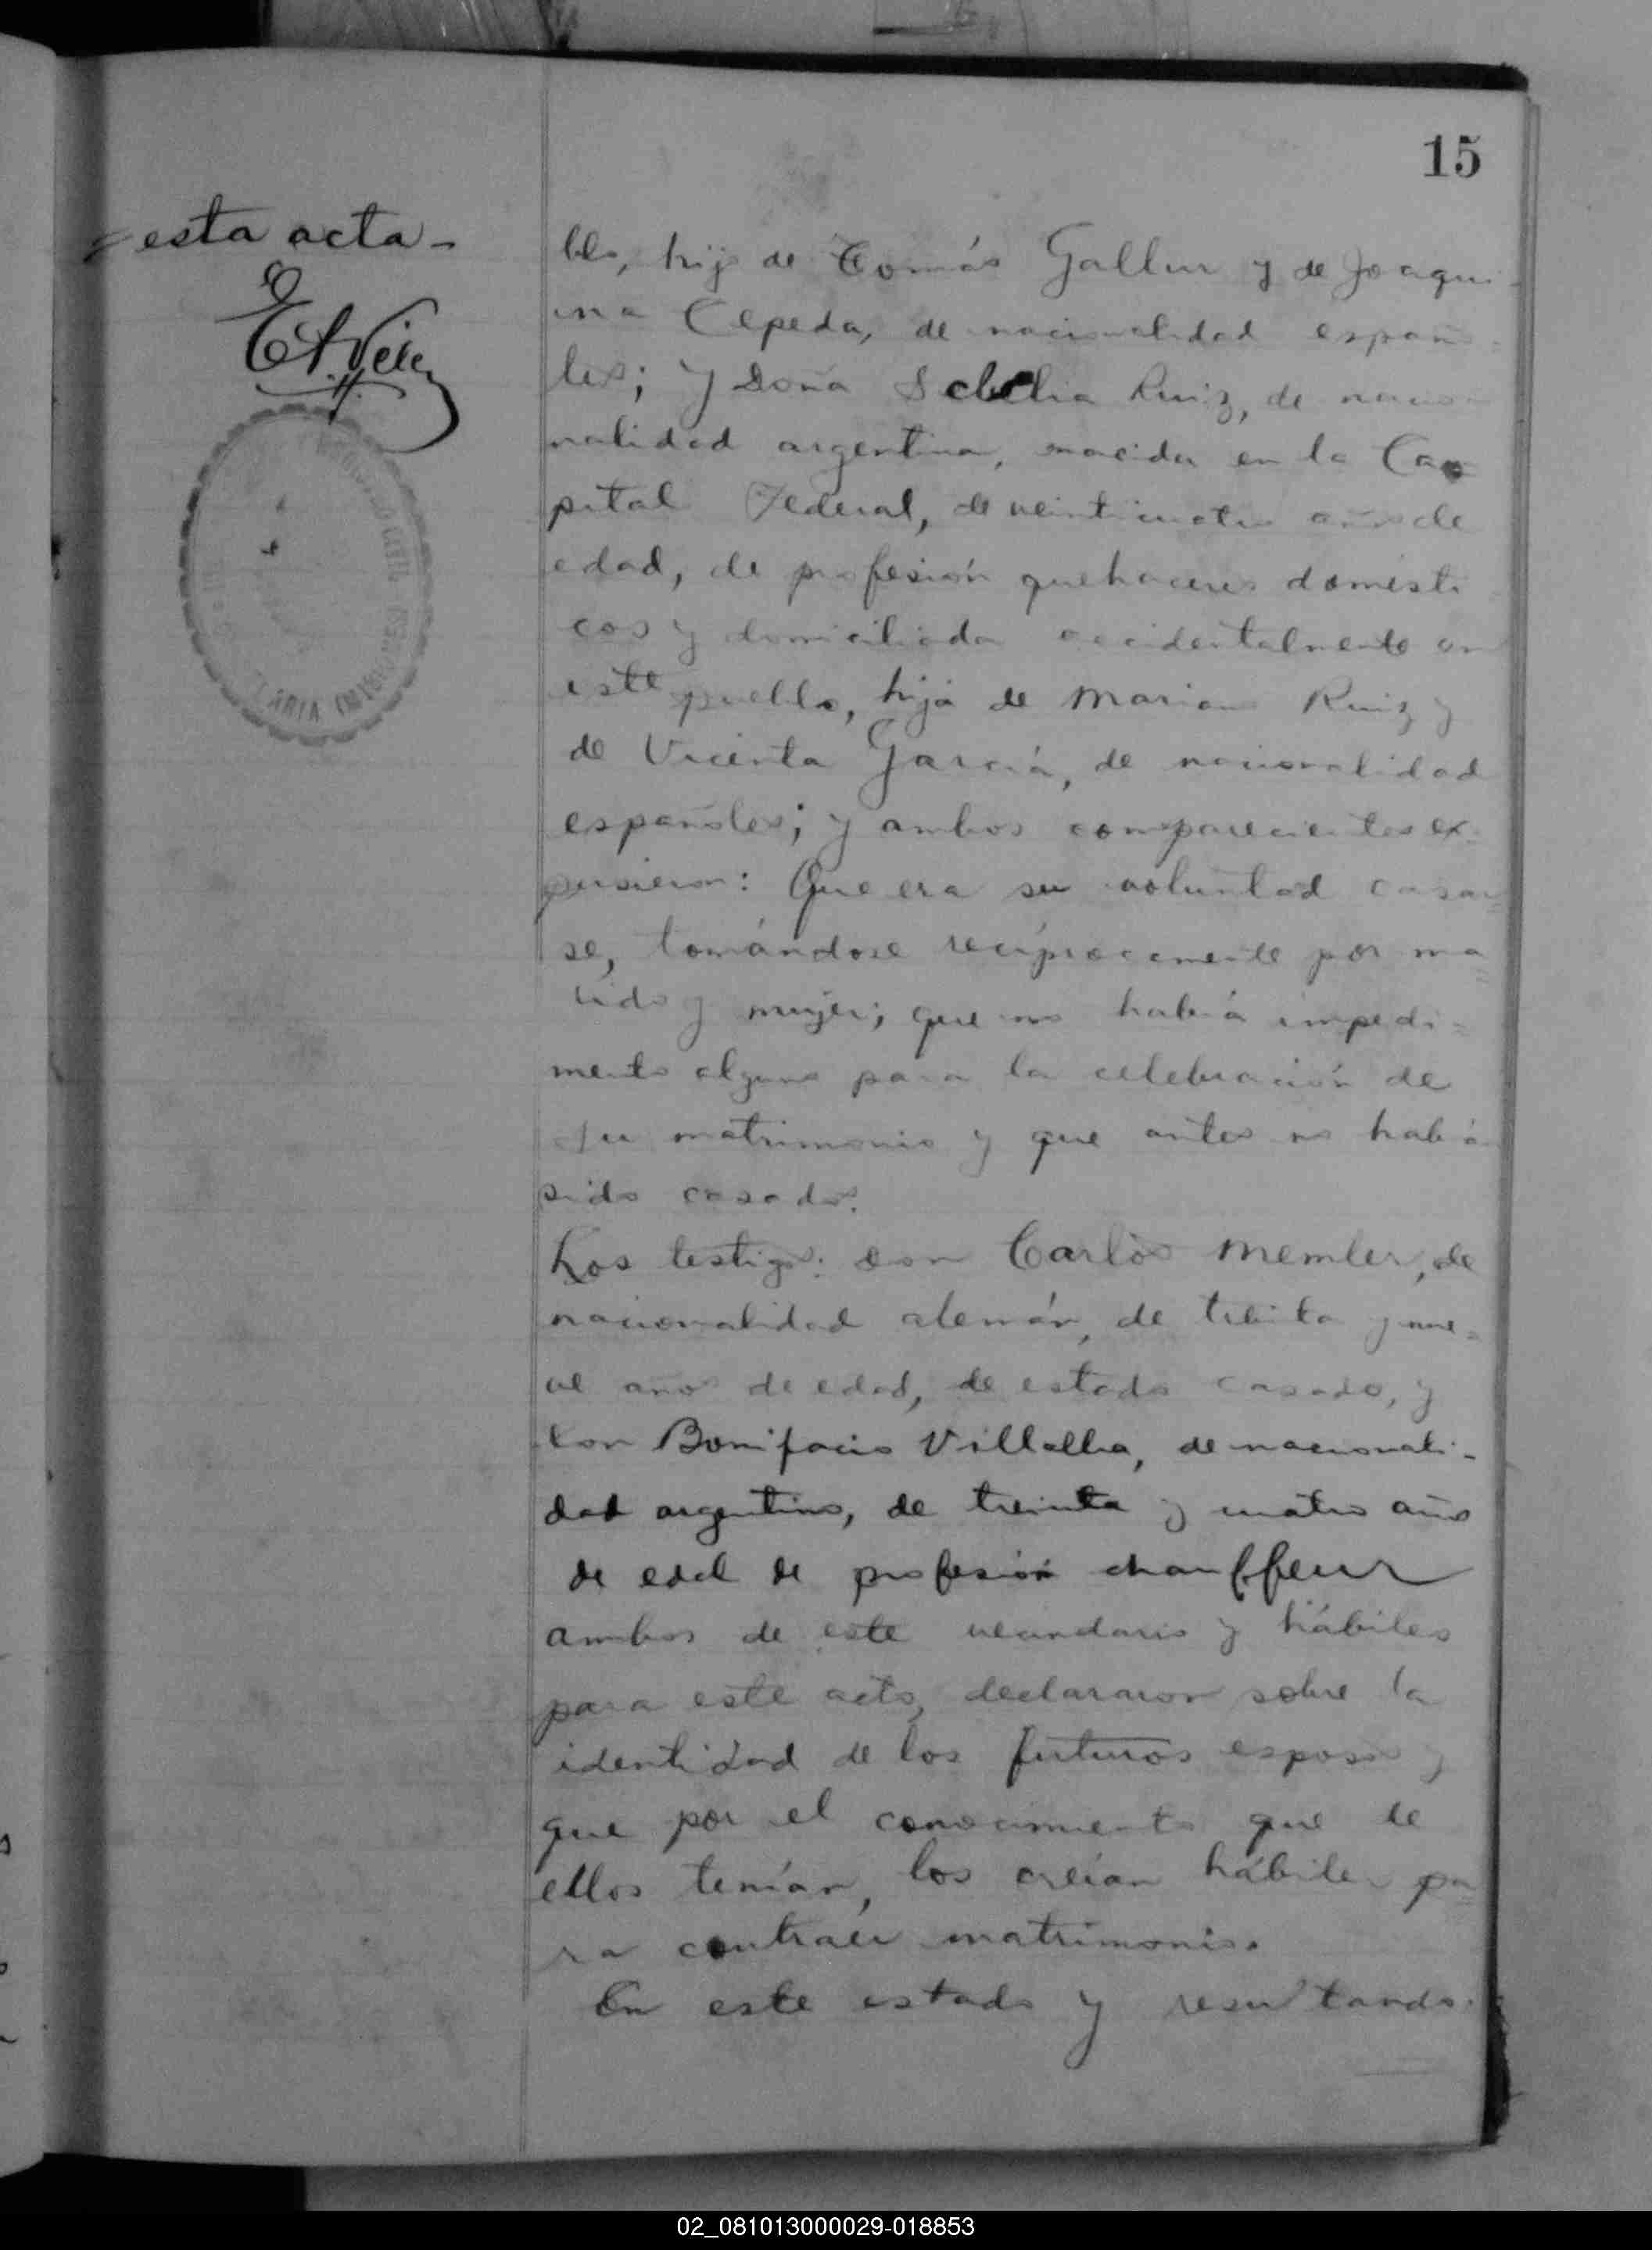 15
esta acta-
blo, hijo de Tomás Gallur y de Joaqui-
ina Cepeda, de nacionalidad españo-
les; y Doña Ruiz, de nacio-
nalidad argentina, nacida en la Ca-
pital Federal, de veinticuatro años de
edad, de profesión quehaceres domésti
cos y domiciliada accidentalmente en
este pueblo, hija de Mariano Ruiz y
de Vicenta García, de nacionalidad
españoles; y ambos comparecientes ex-
pusieron: Que era su voluntad casar=
se, tomándose recíprocamente por ma=
rido y mujer; que no había impedi=
mento alguno para la celebración de
su matrimonio y que antes no había
sido casados.
Los testigos: Don Carlos Memler, de
nacionalidad alemán, de treinta y nue=
ve años de edad, de estado casado, y
Don Bonifacio Villalba, de nacionali-
dad argentino, de treinta y cuatro años
de edad de profesión chauffeur
ambos de este vecindario y hábiles
para este acto, declararon sobre la
identidad de los futuros esposos y
que por el conocimiento que de
ellos tenían, los creían hábiles pa=
ra contraer matrimonio.
En este estado y resultando
02_081013000029-018853